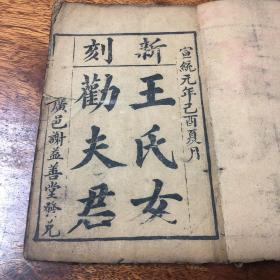 宣統元年己酉夏月
新刻
王氏女
勸夫君
廣邑謝益善堂發兌